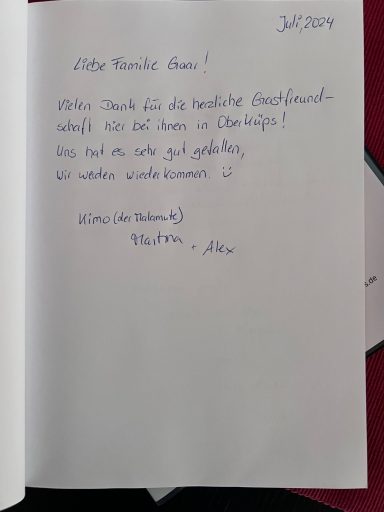 Juli, 2024
Liebe Familie Gaar!
Vielen Dank für die herzliche Gastfreund-
schaft hier bei ihnen in Oberküps!
Uns hat es sehr gut gefallen,
Wir werden wiederkommen. ☺
Kimo (der Malamute)
Martina + Alex
s.de